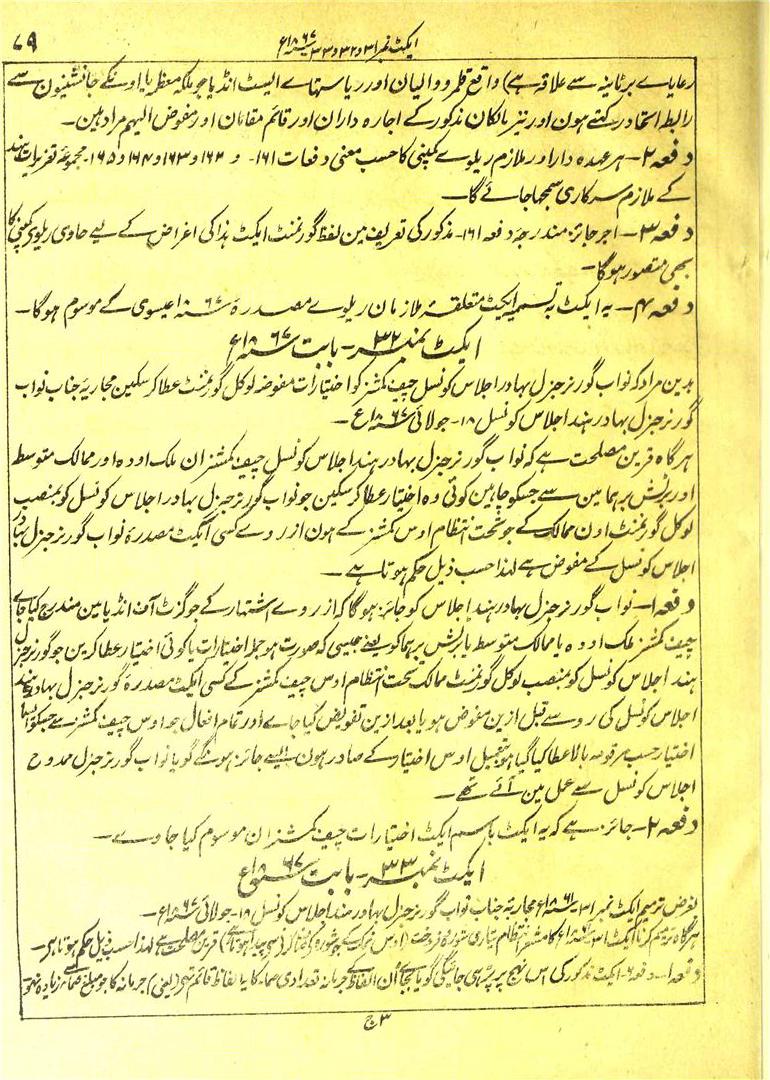 ایکٹ نمبر ۳۱ و ۳۲ و ۳۳ ۱۸۶۷ع
۷۹
رعایاے برٹانیہ سے علاقہ ہے) واقع قلمرو والیان اور ریاستہاے ایسٹ انڈیا جو ملکہ معظمہ یا اونکے جانشینون سے
رابطہ اتحاد رکھتے ہون اور نیز مالکان مذکور کے اجارہ داران اور قائم مقامان اور مفوض الیہم مراد ہین۔
دفعہ ۲۔ ہر عہدہ دار اور ملازم ریلوے کمپنی کا حسب معنی دفعات ۱۶۱۔ و ۱۶۲ و ۱۶۳ و ۱۶۴ و ۱۶۵۔ مجموعہ تعزیرات ہند
کے ملازم سرکاری سمجھا جائے گا۔
دفعہ ۳۔ اجر جائز مندرجہ دفعہ ۱۶۱۔ مذکور کی تعریف مین لفظ گورنمنٹ ایکٹ ہذا کی اغراض کے لیے حاوی ریلوی کمپنی کا
بھی متصور ہوگا۔
دفعہ ۴۔ یہ ایکٹ بہ تسمیہ ایکٹ متعلقہ ملازمان ریلوے مصدرہ ۱۸۶۷ عیسوی کے موسوم ہوگا۔
ایکٹ نمبر ۳۲۔ بابت ۱۸۶۷ع
بدین مراد کہ نواب گورنر جنرل بہادر اجلاس کونسل چیف کمشنر کو اختیارات مفوضہ لوکل گورنمنٹ عطا کر سکین مجاریہ جناب نواب
گورنر جنرل بہادر ہند اجلاس کونسل ۱۸۔ جولائی ۱۸۶۷ع۔
ہرگاہ قرین مصلحت ہے کہ نواب گورنر جنرل بہادر ہند اجلاس کونسل چیف کمشنران ملک اودہ اور ممالک متوسط
اور برٹش برہما مین سے جسکو چاہین کوئی وہ اختیار عطا کر سکین جو نواب گورنر جنرل بہادر اجلاس کونسل کو بمنصب
لوکل گورنمنٹ اون ممالک کے جو تحت انتظام اوس کمشنر کے ہون از روے کسی ایکٹ مصدرہ نواب گورنر جنرل بہادر
اجلاس کونسل کے مفوض ہے لہذا حسب ذیل حکم ہوتا ہے۔
دفعہ ۱۔ نواب گورنر جنرل بہادر ہند اجلاس کو جائز ہوگا کہ از روے اشتہار کے جو گزٹ آف انڈیا مین مندرج کیا جاے
چیف کمشنر ملک اودہ یا ممالک متوسط یا برٹش برہما کو یعنے جیسی کہ صورت ہو جملہ اختیارات یا کوئی اختیار عطا کرین جو گورنر جنرل
ہند اجلاس کونسل کو منصب لوکل گورنمنٹ ممالک تحت انتظام اوس چیف کمشنر کے کسی ایکٹ مصدرہ گورنر جنرل بہادر ہند
اجلاس کونسل کی رو سے قبل ازین مفوض ہو یا بعد ازین تفویض کیا جاے اور تمام افعال جو اوس چیف کمشنر سے جسکو ایسا
اختیار حسب مرقومہ بالا عطا کیا گیا ہو بتعمیل اوس اختیار کے صادر ہون ایسے جائز ہونگے گویا نواب گورنر جنرل ممدوح
اجلاس کونسل سے عمل مین آئے تھے۔
دفعہ ۲۔ جائز ہے کہ یہ ایکٹ باسم ایکٹ اختیارات چیف کمشنران موسوم کیا جاوے۔
ایکٹ نمبر ۳۳۔ بابت ۱۸۶۷ع
بغرض ترمیم ایکٹ نمبر ۳۱ ۱۸۶۱ع مجاریہ جناب نواب گورنر جنرل بہادر ہند اجلاس کونسل ۱۸۔ جولائی ۱۸۶۷ع۔
ہرگاہ ترمیم کرنا ایکٹ ۳۱ ۱۸۶۱ع کا مشعر انتظام تیاری شورہ و فروخت قرین مصلحت ہے لہذا حسب ذیل حکم ہوتا ہے۔
دفعہ ۱۔ دفعہ ۶۔ ایکٹ مذکور کی اس نہج پر پڑھی جائیگی گویا بجاے اُن الفاظ کے جرمانہ تعدادی کا یہ الفاظ قائم تھی (یعنی) جرمانہ کا جو مبلغ سے زیادہ نہو
۳ ج